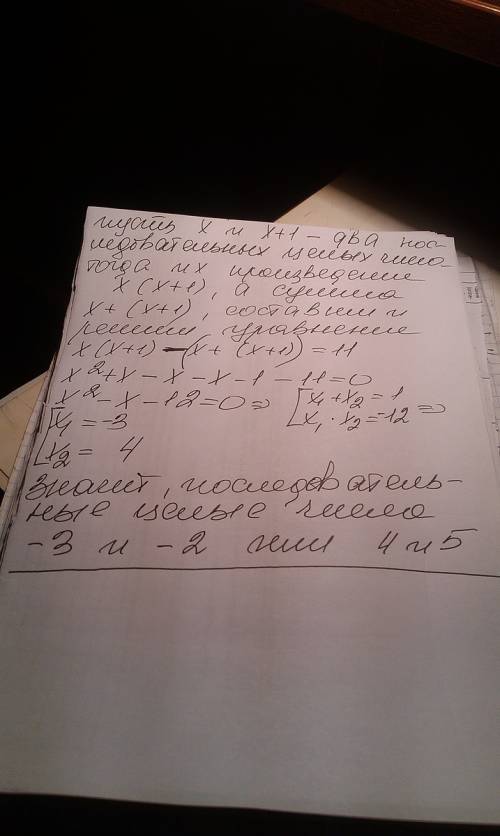 пусть x и x+1 - два пос-
ледовательных целых число
тогда их произведение
x(x+1), а сумма
x+(x+1), составим и
решим уравнение
x(x+1)-(x+(x+1)=11
x²+x-x-x-1-11=0
x²-x-12=0 => [x₁+x₂=1
x₁·x₂=-12 =>
[x₁=-3
x₂= 4
значит, последователь-
ные целые число
-3 и -2 или 4 и 5